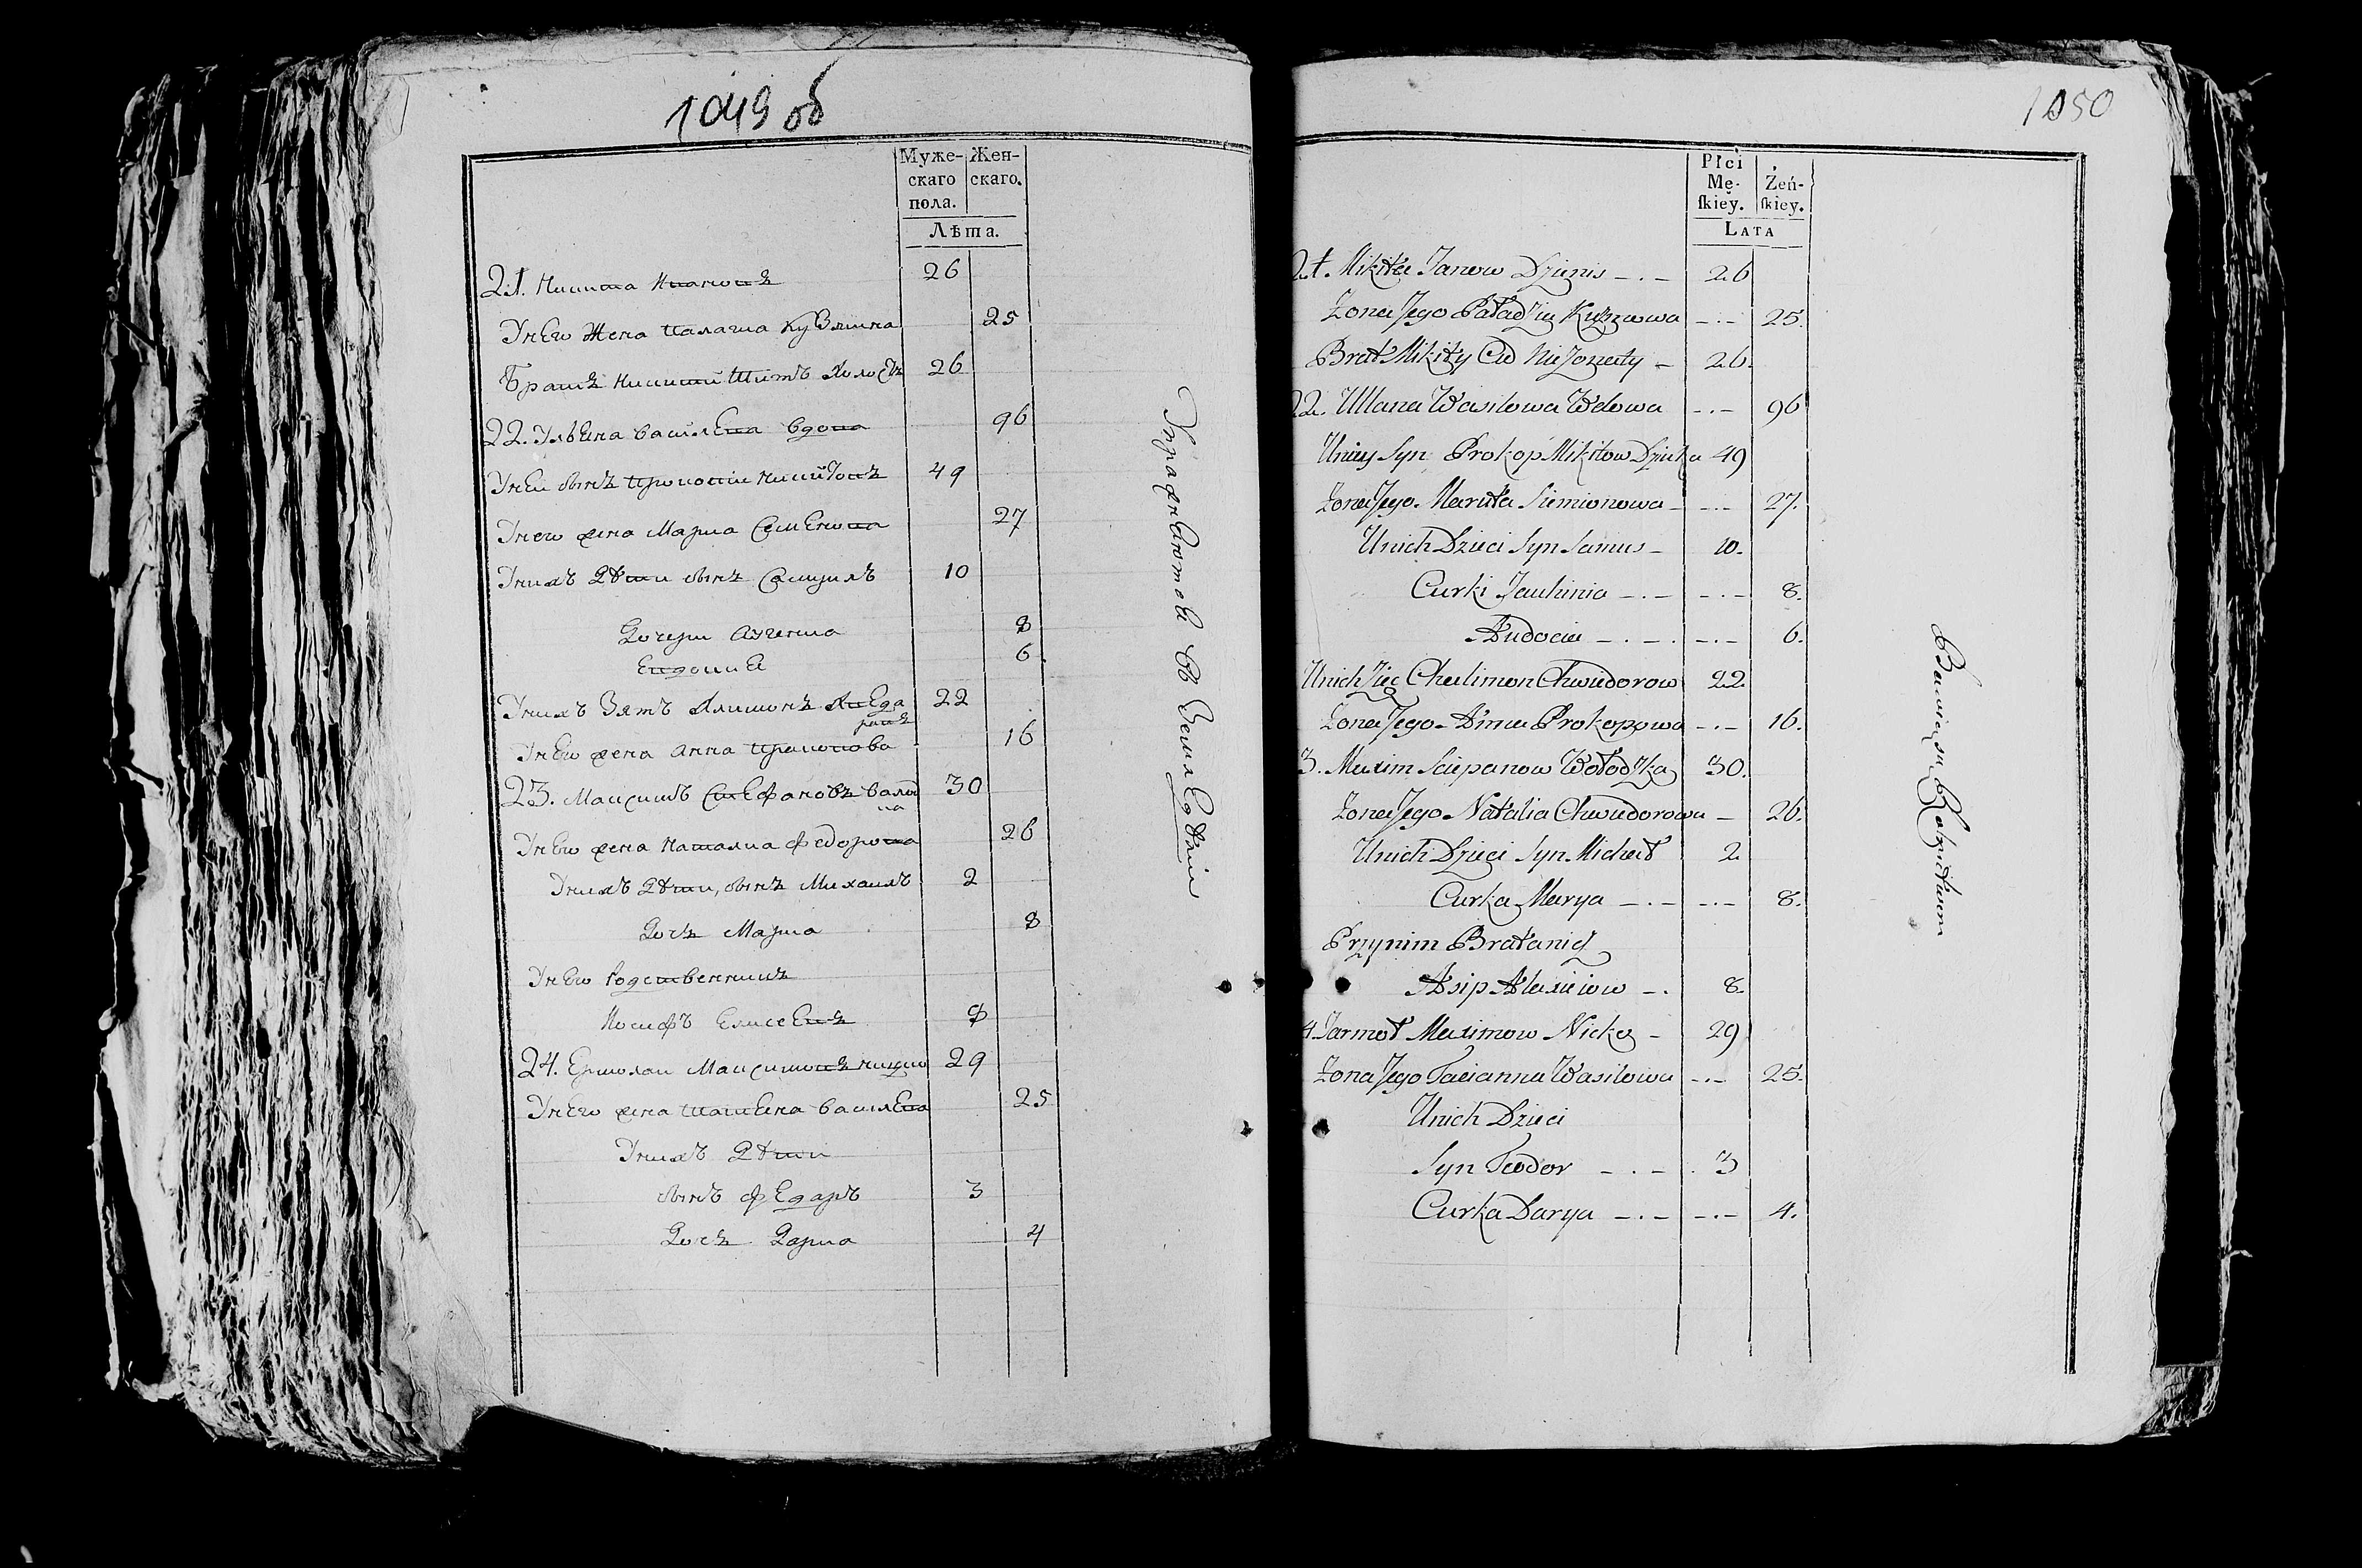 1049 об
Муже-
скаго
пола.
Жен-
скаго.
Лѣта.
21. Никита Ивановъ 26
У нево жена Палагиа Кузмина 25
Братъ Никити Титъ холостъ 26
22. Ульена василева вдова 96
У неи сынъ Прокопiи Никитовъ 49
У нево жена Мариа Семенова 27
У нихъ дѣти сынъ Самуилъ 10
Дочери 8
6
У нихъ зятъ 22
У нево жена Анна 16
23. Максимъ Стефановъ 30
У нево жена Наталиа Федорова 26
У нихъ дѣти, сынъ Михаилъ 2
Дочъ Мариа 8
У нево родственникъ
Иосифъ Елисеевъ 8
24. Ермолаи Максимовъ 29
У нево жена Татиена василева 25
У нихъ дѣти
сынъ Федаръ 3
Дочъ Дариа 4
Упражнѣютсѣ въ Земледѣлiи
1050
Płci
Mę-
ſkiey.
Żeń-
ſkiey.
LATA
21. Mikita Janow Dzienis -.- 26
Zona Jego Paładzia Kuzmowa -.- 25.
Brat Mikity Cid Nieżonaty - 26.
22. Ullana Wasilowa Wdowa -.- 96
Uniey Syn Prokop Mikitow 49
Zona Jego Maruta Siemionowa - -.- 27.
Unich Dzieci Syn Samus - 10.
Curki Jauhinia -.- -.- 8.
Audocia -.-. -.- 6.
Unich Zięc Chalimon Chwiedorow 22.
Zona Jego Anna Prokopowa -.- 16.
3. Maxim Sciepanow Wołodzka 30.
Zona Jego Natalia Chwiedorowa - 26.
Unich Dzieci Syn Michał 2
Curka Marya -.- -.- 8.
Przynim Bratanię
Asip Alexiejow -. 8.
4. Jarmoł Maximow Nicka - 29
Zona Jego Tacianna Wasilowa -.- 25.
Unich Dzieci
Syn Teodor -.-. 3
Curka Darya -.- -.- 4.